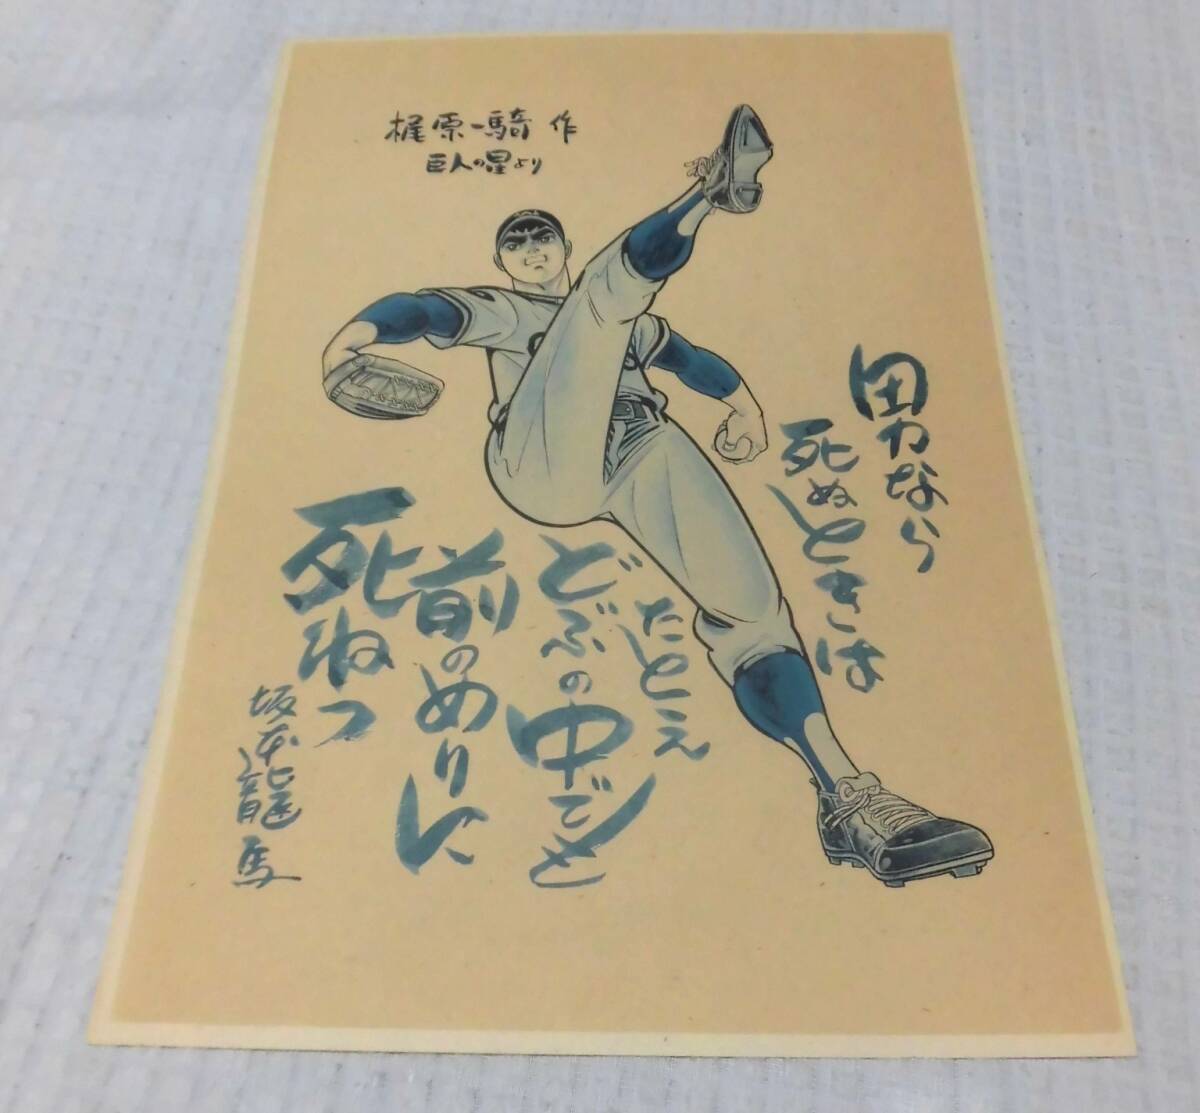 梶原一騎 作
巨人の星より
男なら
死ぬときは
たとえ
どぶの中でも
前のめりに
死ねっ
坂本龍馬